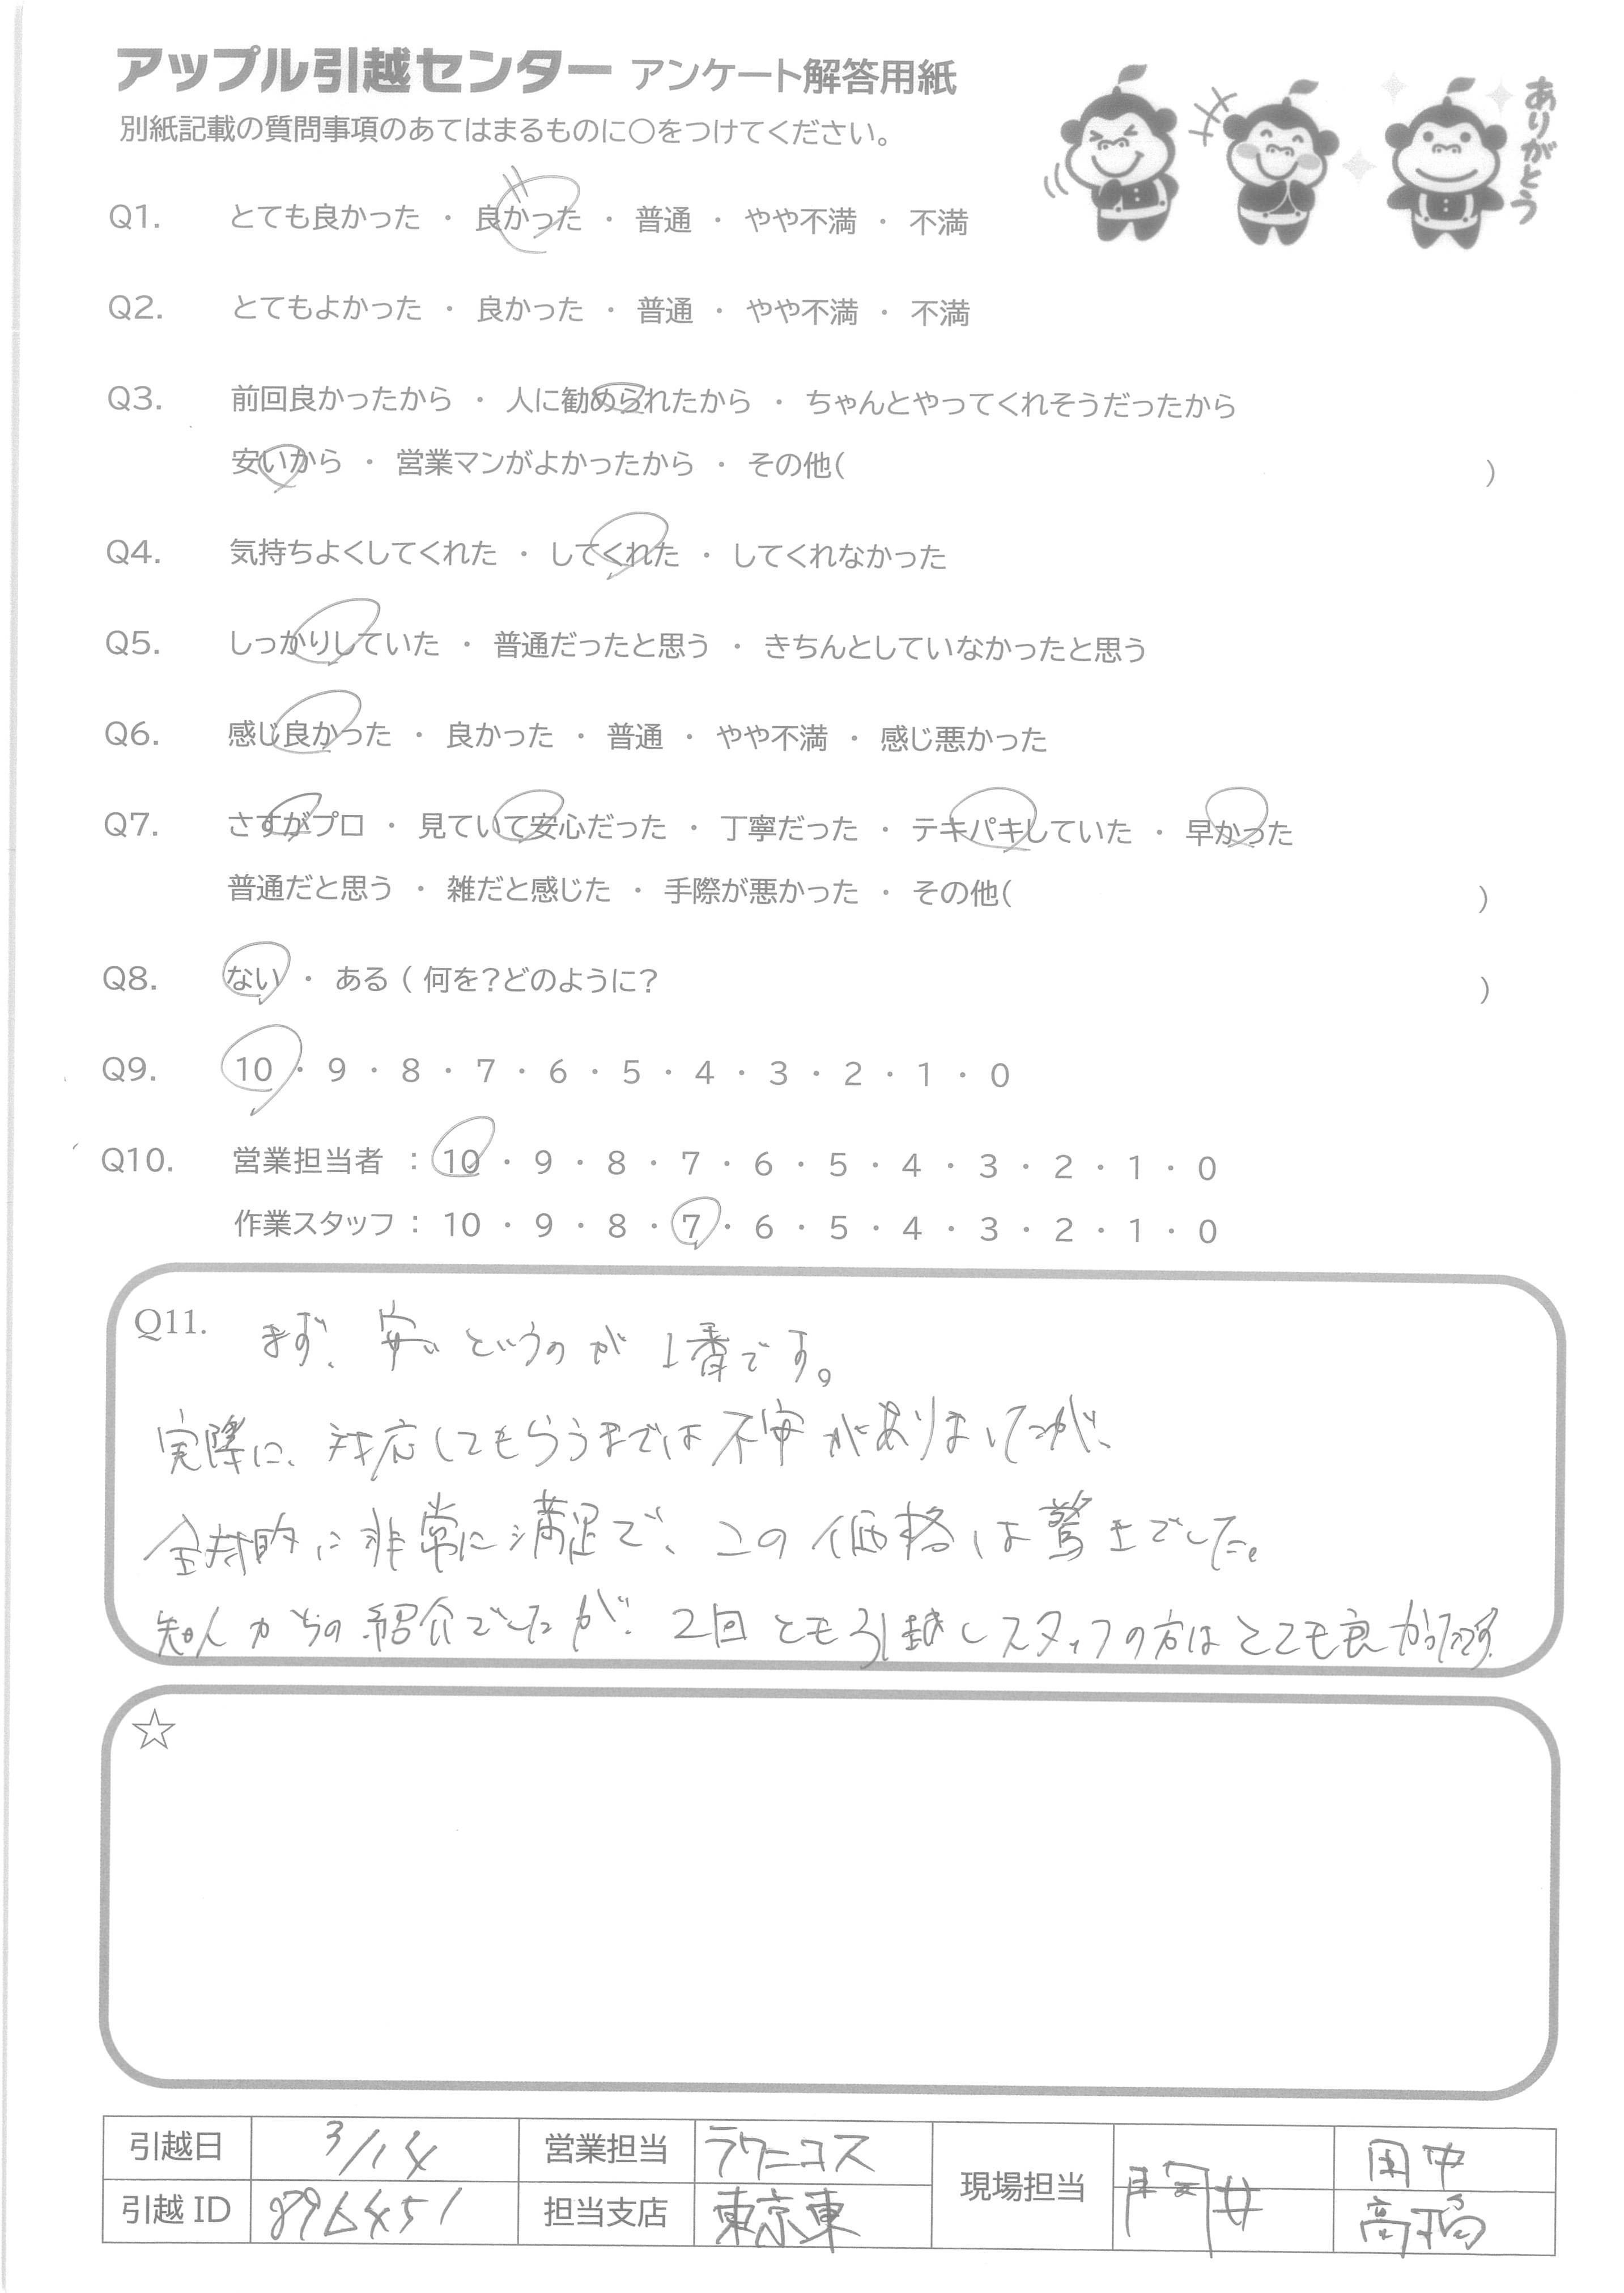 アップル引越センター アンケート解答用紙
別紙記載の質問事項のあてはまるものに○をつけてください。
ありがとう
Q1. とても良かった ・ 良かった ・ 普通 ・ やや不満 ・ 不満
Q2. とてもよかった ・ 良かった ・ 普通 ・ やや不満 ・ 不満
Q3. 前回良かったから ・ 人に勧められたから ・ ちゃんとやってくれそうだったから
安いから ・ 営業マンがよかったから ・ その他( )
Q4. 気持ちよくしてくれた ・ してくれた ・ してくれなかった
Q5. しっかりしていた ・ 普通だったと思う ・ きちんとしていなかったと思う
Q6. 感じ良かった ・ 良かった ・ 普通 ・ やや不満 ・ 感じ悪かった
Q7. さすがプロ ・ 見ていて安心だった ・ 丁寧だった ・ テキパキしていた ・ 早かった
普通だと思う ・ 雑だと感じた ・ 手際が悪かった ・ その他( )
Q8. ない ・ ある ( 何を?どのように? )
Q9. 10 ・ 9 ・ 8 ・ 7 ・ 6 ・ 5 ・ 4 ・ 3 ・ 2 ・ 1 ・ 0
Q10. 営業担当者 : 10 ・ 9 ・ 8 ・ 7 ・ 6 ・ 5 ・ 4 ・ 3 ・ 2 ・ 1 ・ 0
作業スタッフ : 10 ・ 9 ・ 8 ・ 7 ・ 6 ・ 5 ・ 4 ・ 3 ・ 2 ・ 1 ・ 0
Q11. まず、安いというのが1番です。
実際に、対応してもらうまでは不安がありましたが、
全体的に非常に満足で、この価格は驚きでした。
知人からの紹介でしたが、2回とも引越しスタッフの方はとても良かったです。
☆
引越日 3/14 営業担当 ラワニコス 現場担当 田中
引越ID 896451 担当支店 東京東 高橋